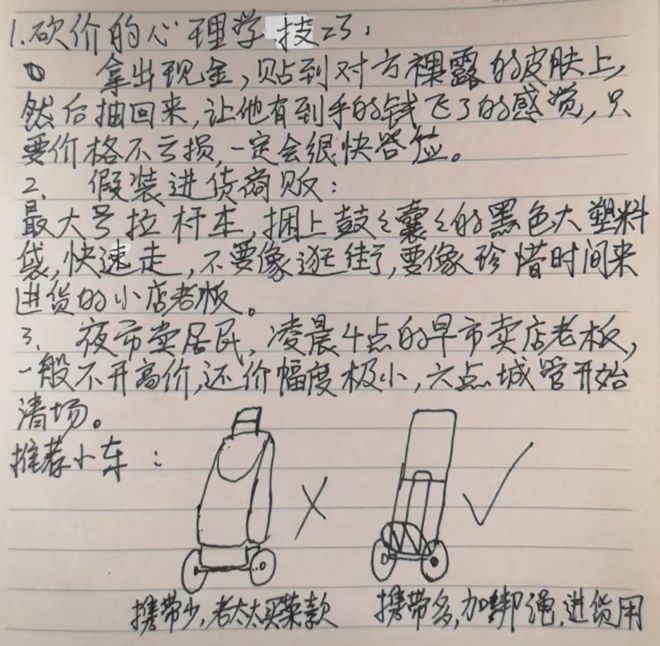 1.砍价的心理学技巧:
① 拿出现金,贴到对方裸露的皮肤上,
然后抽回来,让他有到手的钱飞了的感觉,只
要价格不亏损,一定会很快答应。
2、假装进货商贩:
最大号拉杆车,捆上鼓々囊々的黑色大塑料
袋,快速走,不要像逛街,要像珍惜时间来
进货的小店老板。
3、夜市卖居民,凌晨4点的早市卖店老板,
一般不开高价,还价幅度极小,六点城管开始
清场。
推荐小车:
携带少,老太太买菜款
携带多,加绑绳,进货用